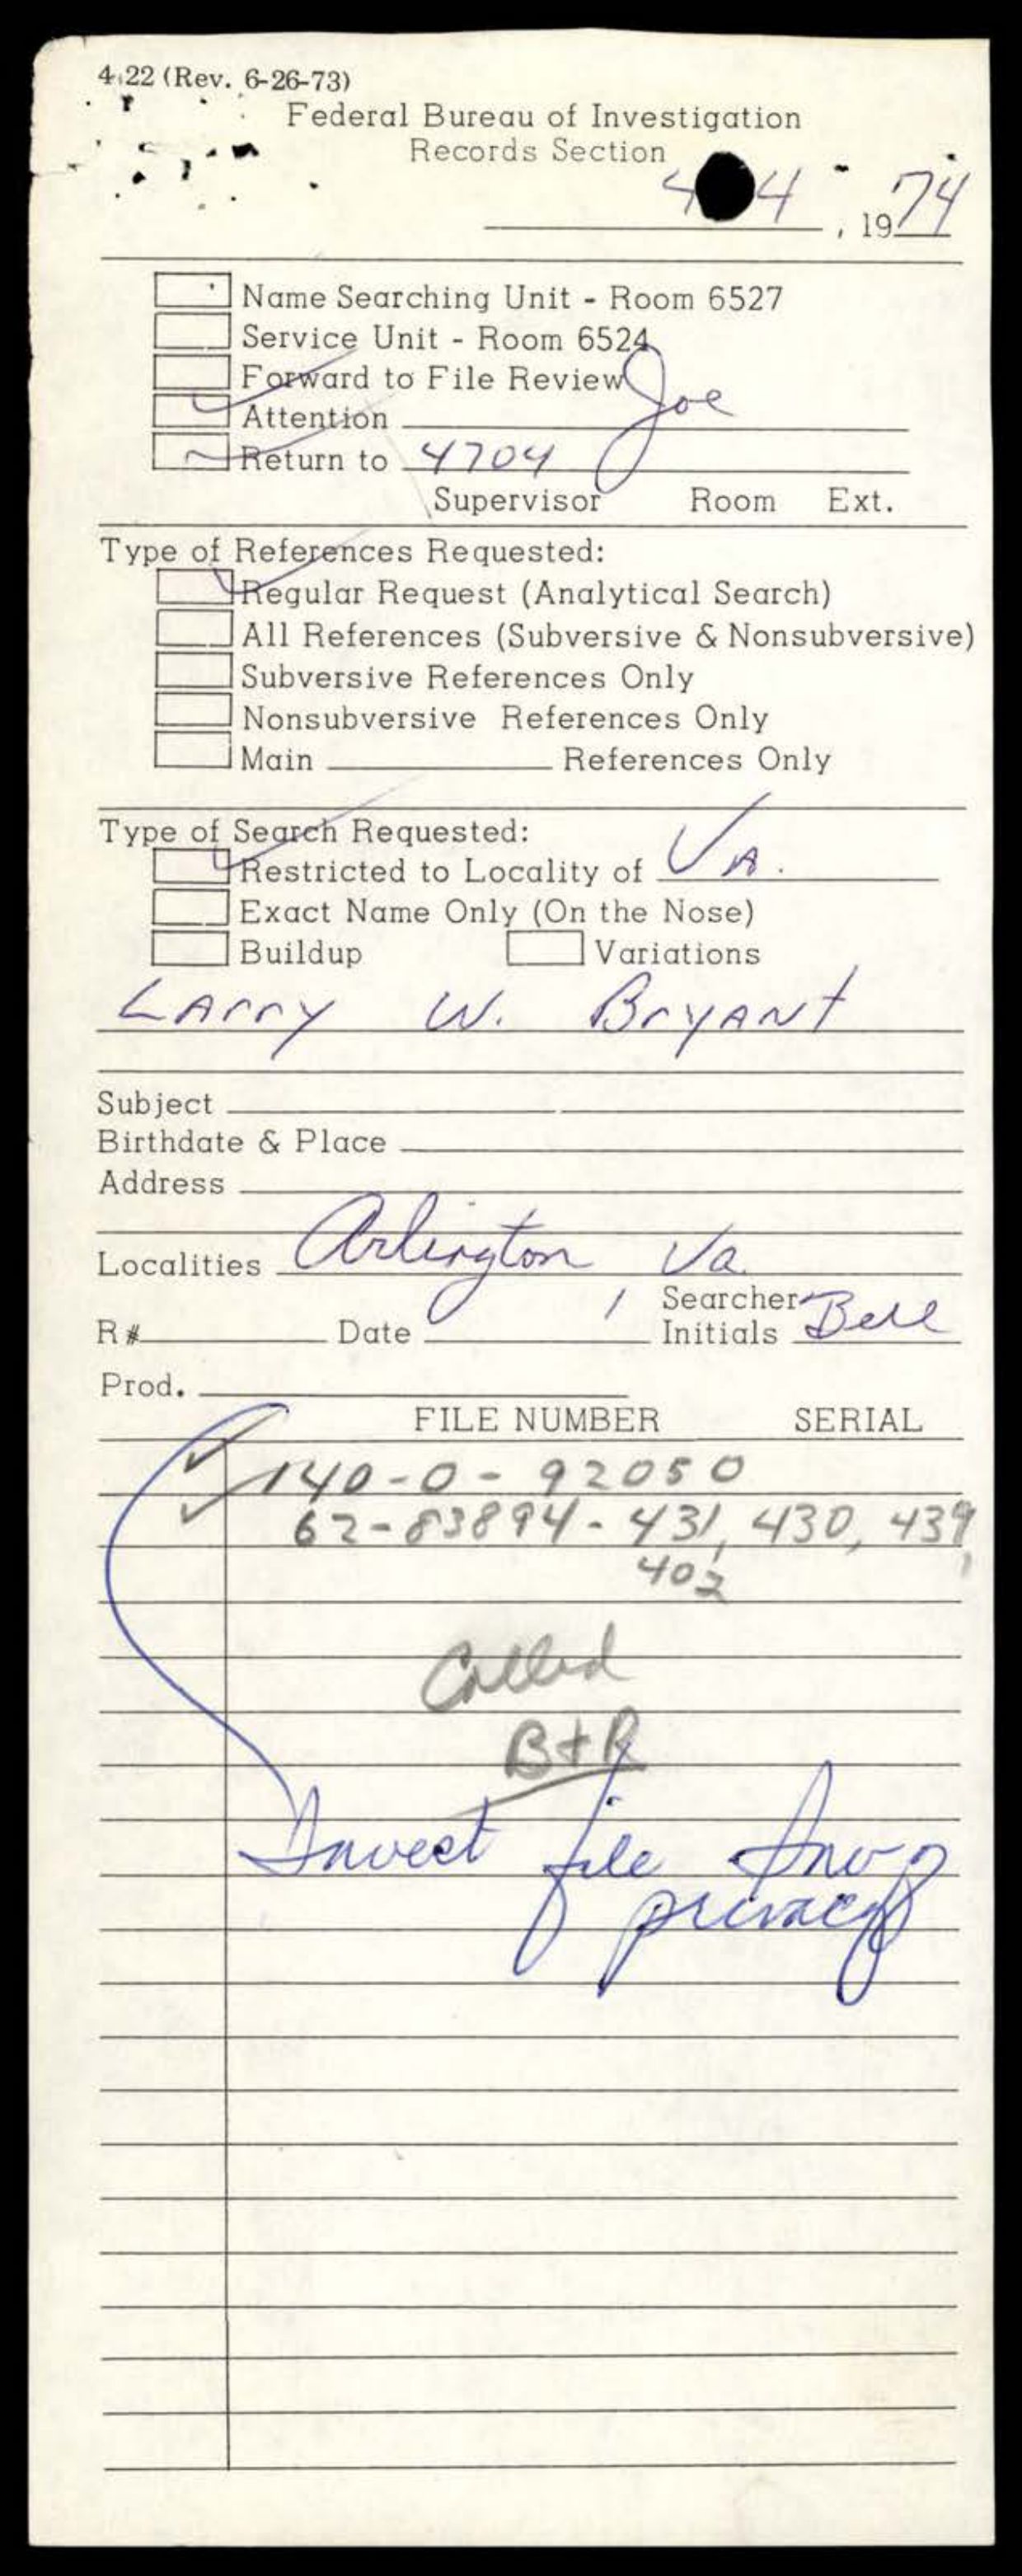 4-22 (Rev. 6-26-73)
Federal Bureau of Investigation
Records Section
4 4, 1974
Name Searching Unit - Room 6527
Service Unit - Room 6524
Forward to File Review
Attention Joe
Return to 4704
Supervisor Room Ext.
Type of References Requested:
Regular Request (Analytical Search)
All References (Subversive & Nonsubversive)
Subversive References Only
Nonsubversive References Only
Main References Only
Type of Search Requested:
Restricted to Locality of VA.
Exact Name Only (On the Nose)
Buildup Variations
LArry W. BryANt
Subject
Birthdate & Place
Address
Localities Arlington, Va.
Searcher
R# Date Initials Bell
Prod.
FILE NUMBER SERIAL
140-0-92050
62-83894-431, 430, 439,
402
Called
B+R
Invest file Inv of
privacy